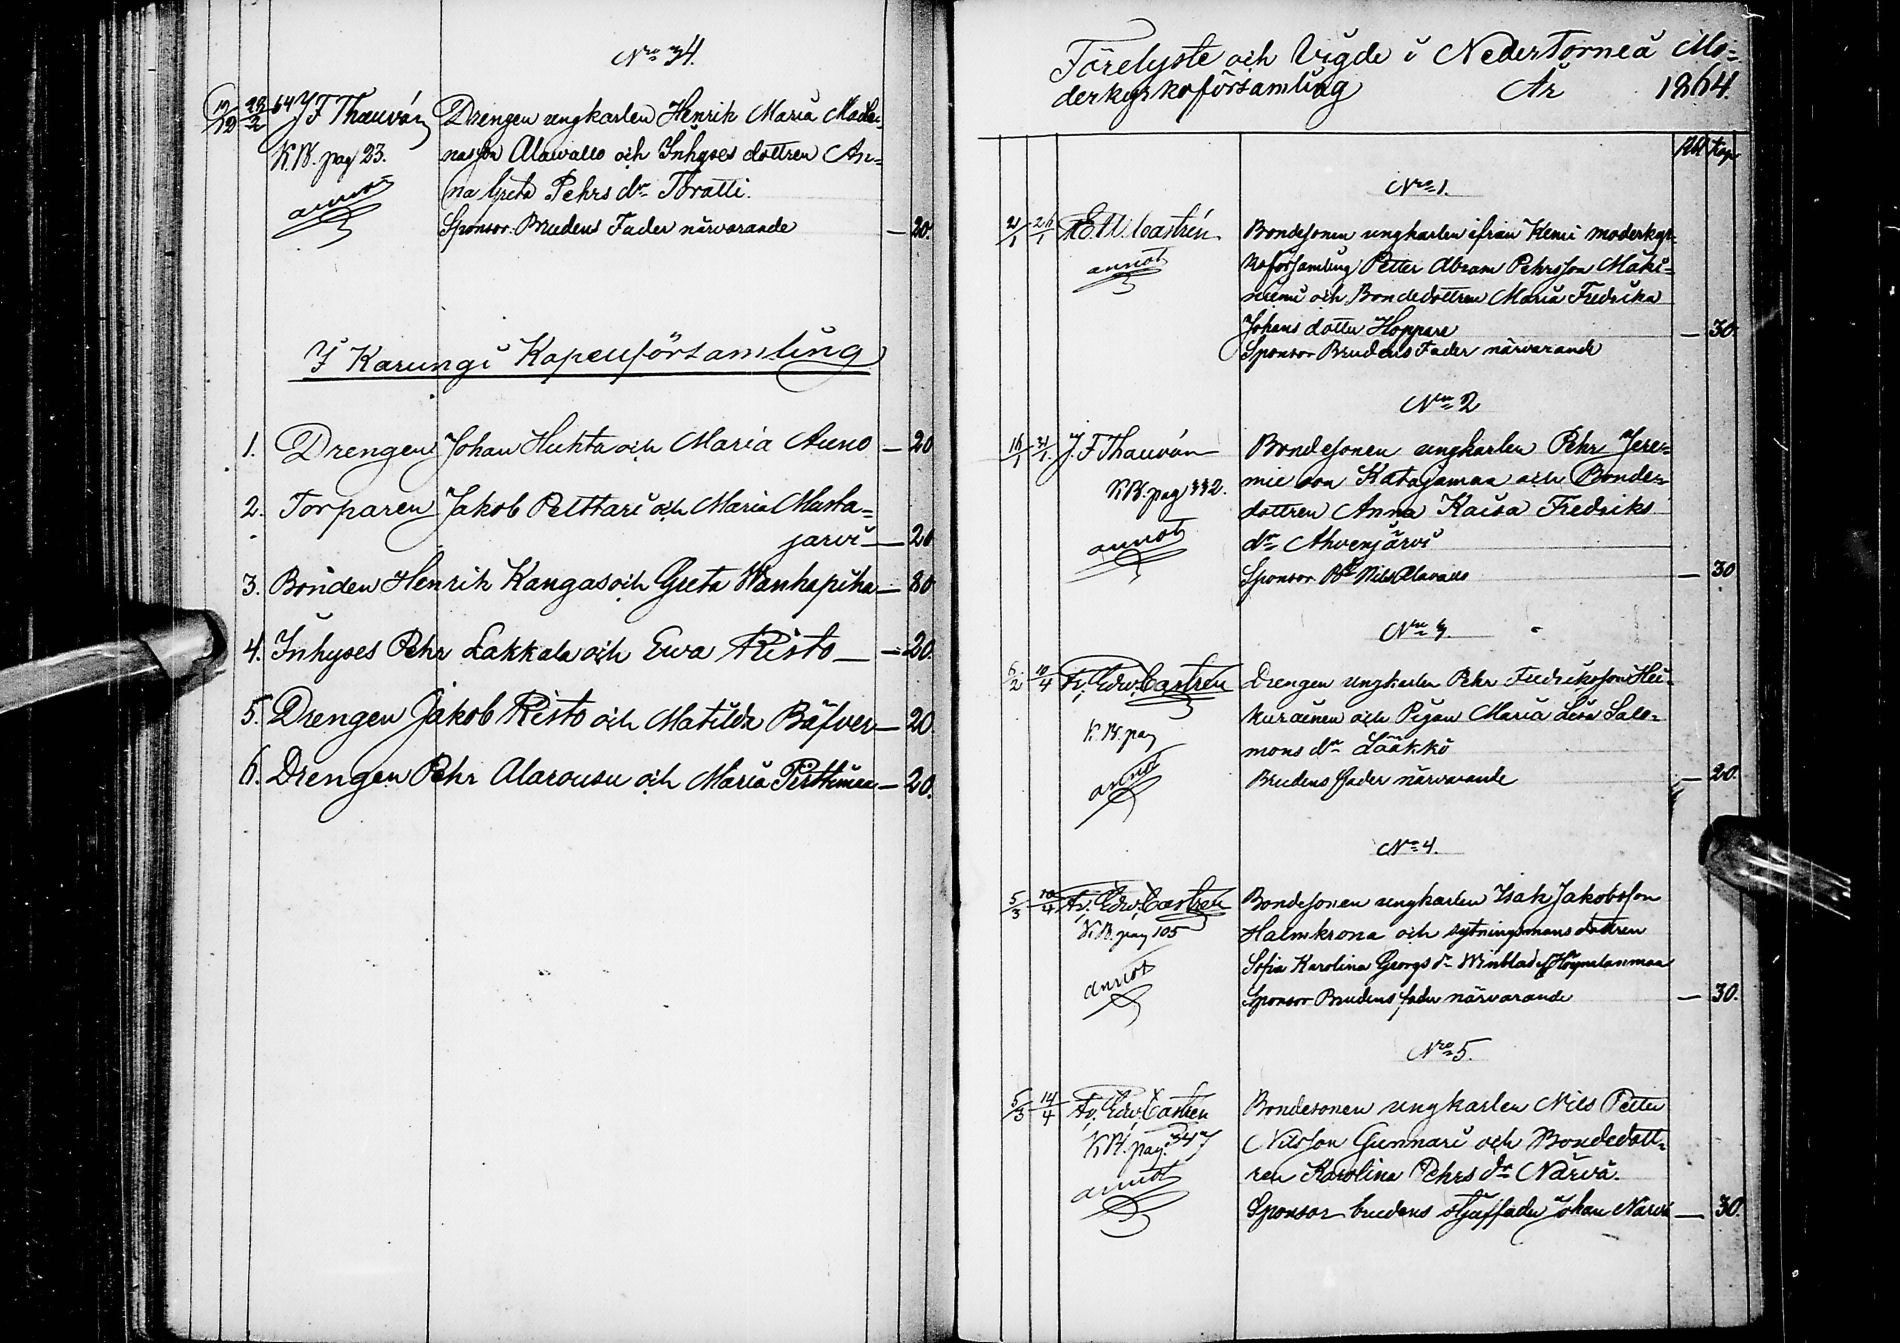 Nro 34.
12/12 28/2 64 J F Thauvón Drengen ungkarlen Henrik Maria Mada-
K.B. pag 23. nasson Alawallo och Inhyses dottren An-
annot na Greta Pehrs dr Toratti.
Sponsor Brudens Fader närvarande — 20.
I Karungi Kapellförsamling
1. Drengen Johan Huhta och Maria Auno — 20
2. Torparen Jakob Pelttari och Maria Musta-
jarvi — 20
3. Bonden Henrik Kangas och Greta Wanhapiha — 80
4. Inhyses Pehr Lakkala och Ewa Risto — 20.
5. Drengen Jakob Risto och Matilda Bäfver — 20
6. Drengen Pehr Alarousu och Maria Pirttimaa — 20.
Förelyste och Vigde i Neder Torneå Mo-
derkyrkoförsamling År 1864.
Rbl Kop
Nro 1.
2/1 26/1 E U Castrén Bondesonen ungkarlen ifrån Kemi moderkyr-
annot koförsamling Petter Abram Pehrsson Mäki-
niemi och Bondedottren Maria Fredrika
Johans dotter Hoppare — 30
Sponsor Brudens Fader närvarande
Nro 2
16/1 31/1 J. F Thauvón Bondesonen ungkarlen Pehr Jere-
K.B. pag 332. mie son Katajamaa och Bonde-
annot dottren Anna Kaisa Fredriks
dr Ahvenjärvi
Sponsor Nils Alawallo — 30
Nro 3.
6/2 10/4 Fr. Edw. Castrén Drengen ungkarlen Pehr Fredriksson Hei-
K.B. pag kurainen och Pigan Maria Lisa Salo-
annot mons dr Lääkkö
Brudens fader närvarande — 20.
Nro 4.
5/3 10/4 Fr. Edw. Castrén Bondesonen ungkarlen Isak Jakobsson
K.B. pag 105 Halmkrona och sytningsmans dottren
annot Sofia Karolina Georgs dr Winblad
Sponsor Brudens fader närvarande — 30.
Nro 5.
5/3 14/4 Fr. Edw. Castrén Bondesonen ungkarlen Nils Petter
K.B. pag. 347 Nilsson Gunnari och Bondedott-
annot ren Karolina Pehrs dr Närvä.
Sponsor brudens styffader Johan Närvä — 30.